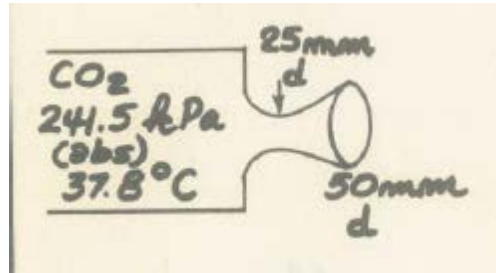 CO₂
241.5 kPa
(abs)
37.8°C
25mm
d
50mm
d